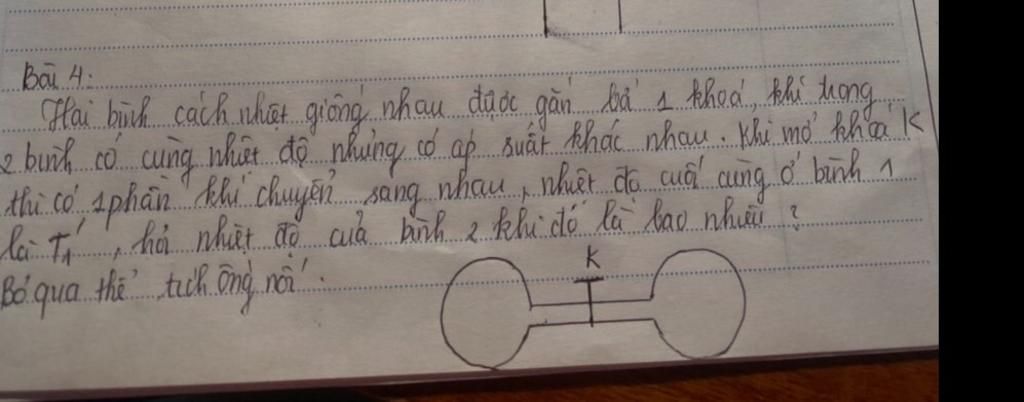 Bài 4:
Hai bình cách nhiệt giống nhau được gắn bở 1 khoá, khí trong
2 bình có cùng nhiệt độ nhưng có áp suất khác nhau. Khi mở khoá K
thì có 1 phần khí chuyển sang nhau, nhiệt độ cuối cùng ở bình 1
là T₁', hỏi nhiệt độ của bình 2 khi đó là bao nhiêu?
Bỏ qua thể tích ống nối.
K